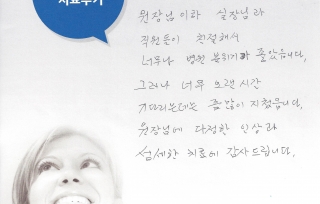 치료후기
원장님이하 실장님과
직원들이 친절해서
너무나 병원 분위기가 좋았습니다.
그러나 너무 오랜 시간
기다리는데는 좀 많이 지쳤습니다.
원장님에 다정한 인상과
섬세한 치료에 감사드립니다.